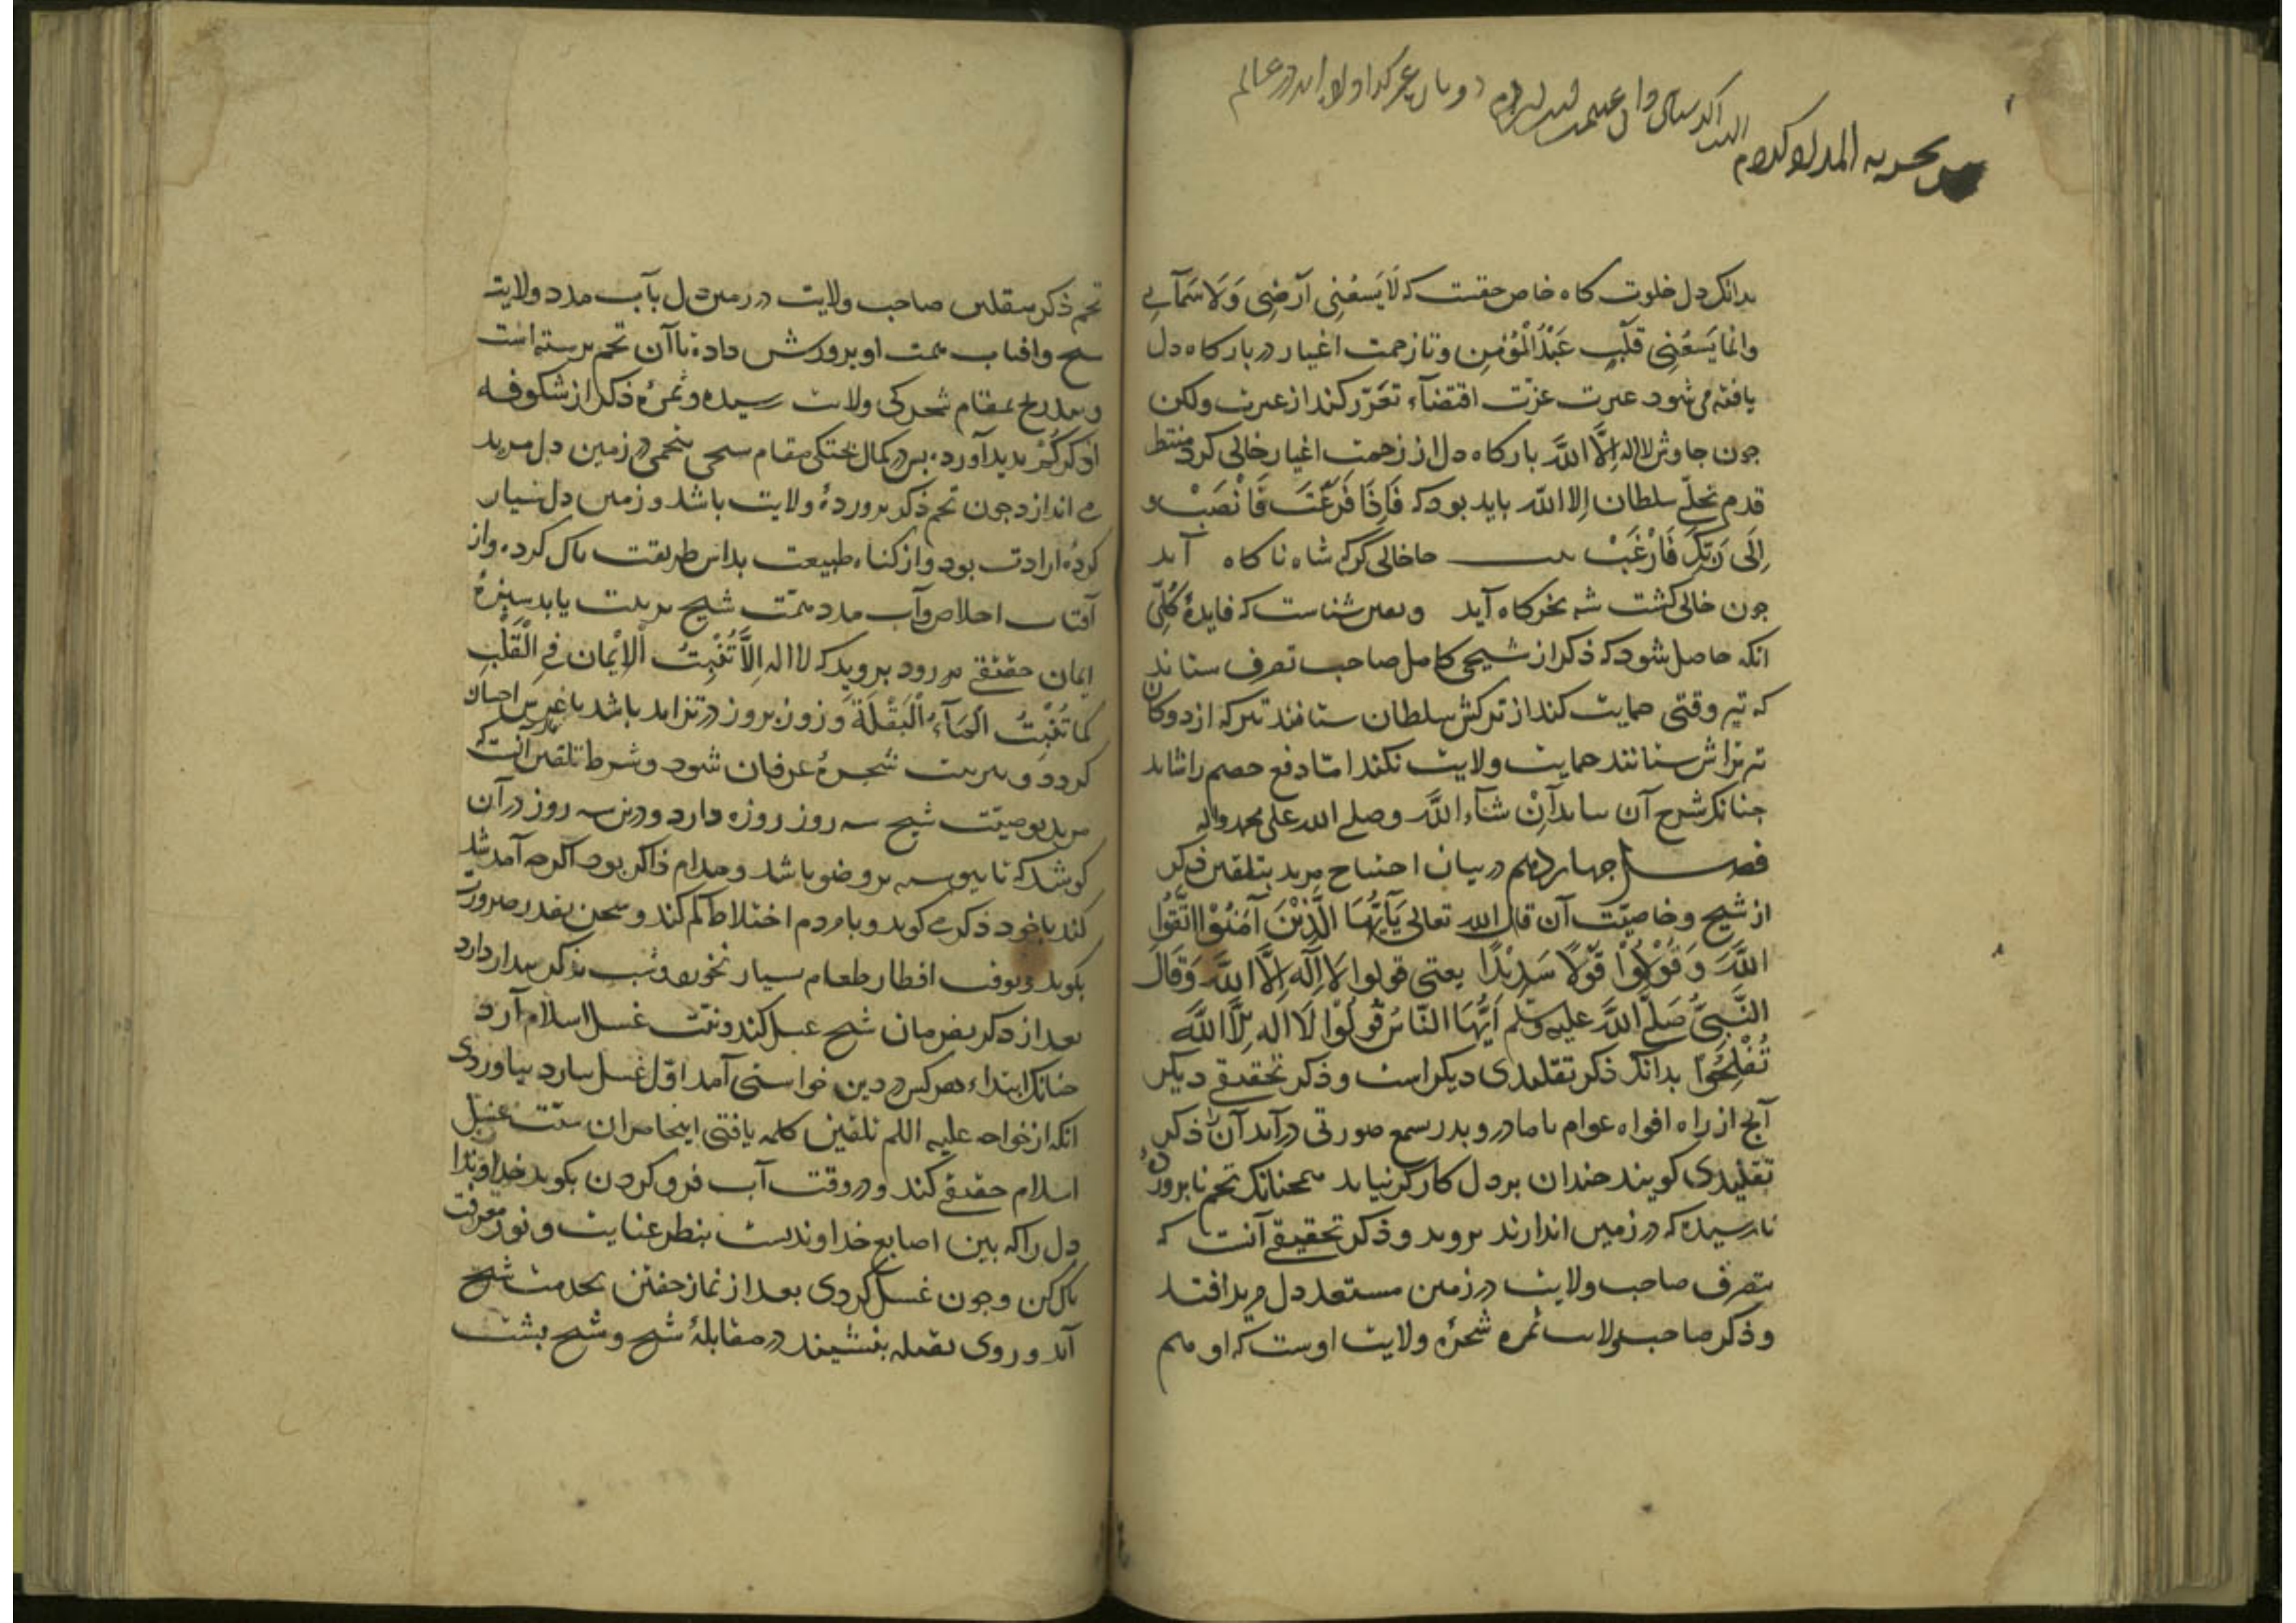 بدانک دل خلوت کاه خاص حقست که لَایَسَعُنِی اَرْضِی وَلَاسَمَآیِی
وانما یَسَعُنِی قَلْبِ عَبْدُالْمُؤْمِنِ وتا زحمت اغیار در بارکاه دل
یافته می‌شود غیرت عزّت اقتضآء تعزّز کند از غیرت ولکن
جون جاوش لااله اِلَّا اللّٰه بارکاه دل از زحمت اغیار خالی کرد منتظر
قدم تجلّی سلطان اِلا اللّٰه باید بود که فَاِذَا فَرَغْتَ فَانْصَبْ و
اِلَی رَبِّکَ فَارْغَبْ بیت جا خالی کن که شاه ناکاه آید
جون خالی کشت شه بخرکاه آید ویقین شناس که فایدهٔ کُلّی
انکه حاصل شود که ذکر از شیخی کامل صاحب تصرف ستاند
که تیر وقتی حمایت کند از ترکش سلطان ستانند تیر که از دوکان
تیر تراش ستانند حمایت ولایت نکند امّا دفع خصم را شاید
جنانک شرح آن بیاید اِنْ شآء اللّٰه وصلی الله علی محمد واله
فصل جهاردهم در بیان احتیاج مرید بتلقین ذکر
از شیخ و خاصیّت آن قال الله تعالی یَآاَیُّهَا الَّذِیْنَ آمَنُوْا اتَّقُوا
اللّٰهَ وَ قُوْلُوْا قَوْلًا سَدِیْدًا یعنی قولوا لَا اِلٰهَ اِلَّا اللّٰه وَقَالَ
النَّبِیُّ صَلَّی اللّٰه علیه وسلّم اَیُّهَا النَّاسُ قُوْلُوْا لَا اله اِلَّا اللّٰه
تُفْلِحُوْا بدانک ذکر تقلیدی دیکر است و ذکر تحقیقی دیکر
آنج از راه افواه عوام یا مادر و پدر بسمع صورتی درآید آن را ذکر
تقلیدی کویند جندان بر دل کارکر نیاید همجنانک تخم ناپرورده
نارسیده که در زمین اندازند نروید و ذکر تحقیقی آنست که
بتصرف صاحب ولایت در زمین مستعد دل مرید افتد
و ذکر صاحب ولایت ثمره شجرهٔ ولایت اوست که او هم
تخم ذکر بتلقین صاحب ولایت در زمین دل بآب مدد ولایت
شیخ وافتاب همت او پرورش داده تا آن تخم برسته است
و بتدریج بمقام شجرکی ولایت رسیده و ثمرهٔ ذکر از شکوفه
اذکرکُم بدید آورده بس در کمال بختکی مقام شیخی تخمی در زمین دل مرید
می اندازد جون تخم ذکر پروردهٔ ولایت باشد و زمین دل شیار
کردهٔ ارادت بود و از کیاه طبیعت بداس طریقت باک کرده و از
آفتاب اخلاص وآب مدد همّت شیخ تربیت یابد سبزهٔ
ایمان حقیقی بر رود بروید که لا اله اِلَّا تُنْبِتُ اَلْاِیْمَان فِی الْقَلْبِ
کَمَا تُنْبِتُ الْمَآءُ الْبَقْلَةَ وروز بروز در تزاید باشد تا
کردد و شجرهٔ عرفان شود و شرط تلقین آنست که
مرید بوصیّت شیخ سه روز روزه دارد ودرین سه روز در آن
کوشد که تا پیوسته بر وضو باشد و مدام ذاکر بود اکرجه آمد شد
کند با خود ذکر می کوید و با مردم اختلاط کم کند و سخن بقدر ضرورت
بکوید و بوقت افطار طعام بسیار نخورد و شب بذکر بیدار دارد
بعد از ذکر بفرمان شیخ غسل کند و نیّت غسل اسلام آرد
جنانک ابتداء هر کس در دین خواستی آمد اوّل غسل اسلام بیاوردی
انکه از خواجه علیه السلم تلقین کلمه یافتی اینجا بران سنّت غسل
اسلام حقیقی کند و در وقت آب فرو کردن بکوید خداوندا
دل را که بین اصابع خداوندیست بنظر عنایت و نور معرفت
باک کن وجون غسل کردی بعد از نماز خفتن بخدمت شیخ
آید و روی بقبله بنشیند در مقابلهٔ شیخ و شیخ بشت